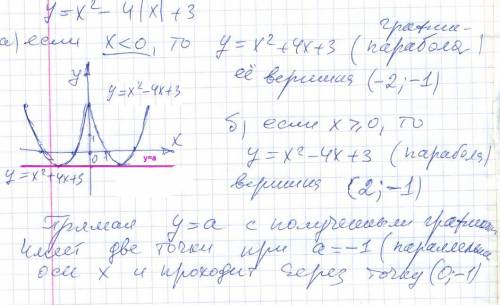 y=x²-4|x|+3
а) если x<0, то y=x²+4x+3 (график-парабола)
её вершина (-2;-1)
y
y=x²-4x+3
x
0
1
y=a
y=x²+4x+3
б) если x≥0, то
y=x²-4x+3 (парабола)
вершина (2;-1)
Прямая y=a с полученным графиком
имеет две точки при a=-1 (параллельна
оси x и проходит через точку (0;-1)